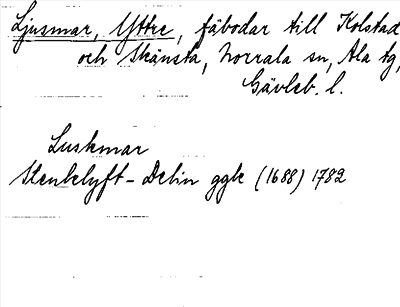 Ljusmar, Yttre, fäbodar till Kolstad
och Skänsta, Norrala sn, Ala tg,
Gävleb. l.
Luskmar
Stenklyft - Delin ggk (1688) 1782